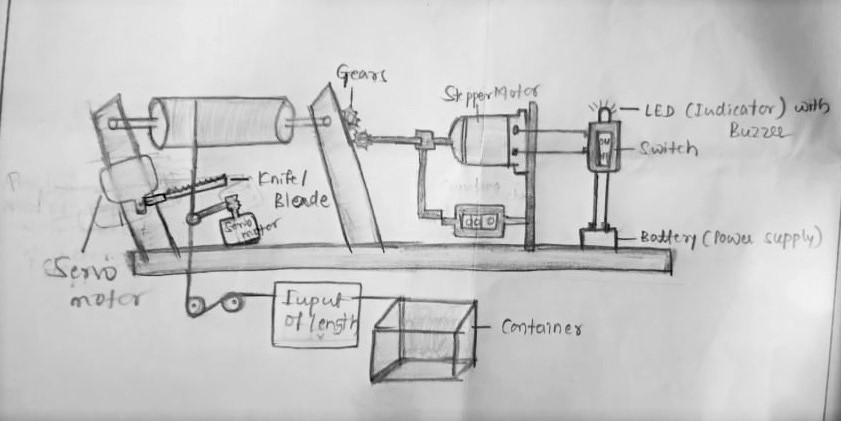 Gears
Stepper Motor
LED (Indicator) with
Buzzer
Switch
Knife/
Blade
Servo
motor
Battery (Power supply)
Servo
motor
Input
of length
Container